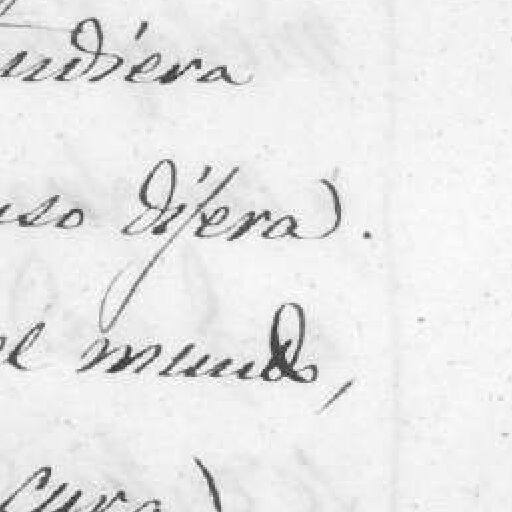 udiera
uso difera).
el mundo,
cura)